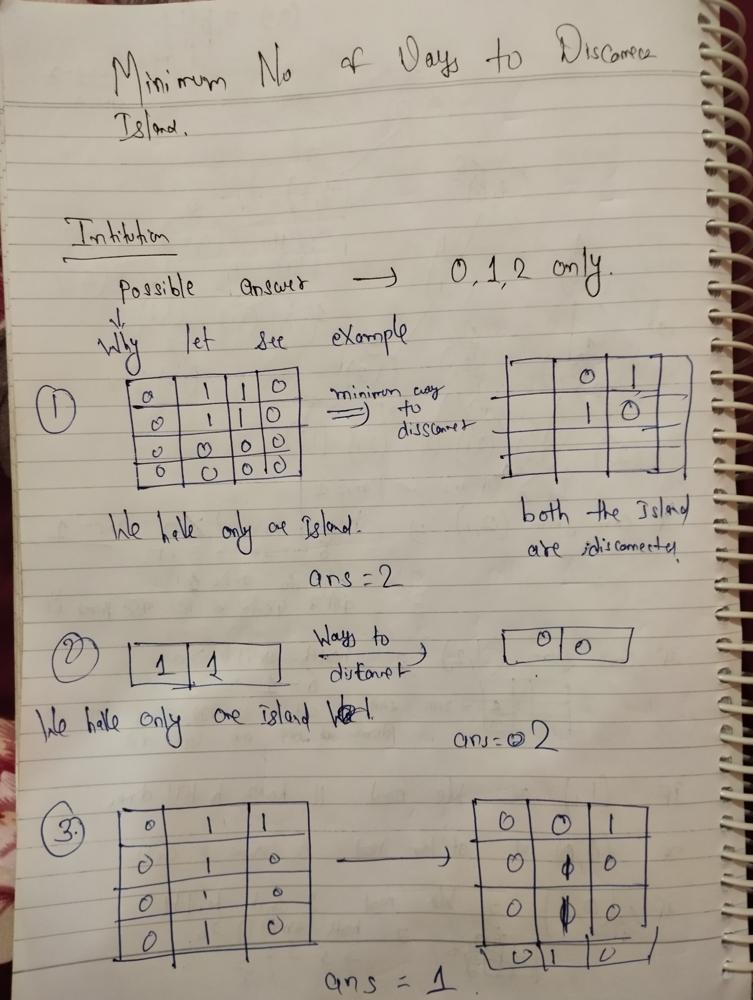 Minimum No of Ways to Disconnect
Island.
Intitution
possible answer → 0, 1, 2 only.
↓
Why let see example
① 0 1 1 0 minimum way 0 1
0 1 1 0 ⇒ to 1 0
0 0 0 0 dissconnet
0 0 0 0
We have only one Island. both the Island
are disconnected.
ans = 2
② 1 1 Ways to 0 0
disconnet
We have only one island
ans = 2
③. 0 1 1 0 0 1
0 1 0 → 0 1 0
0 1 0 0 0
0 1 0 0 1 0
ans = 1